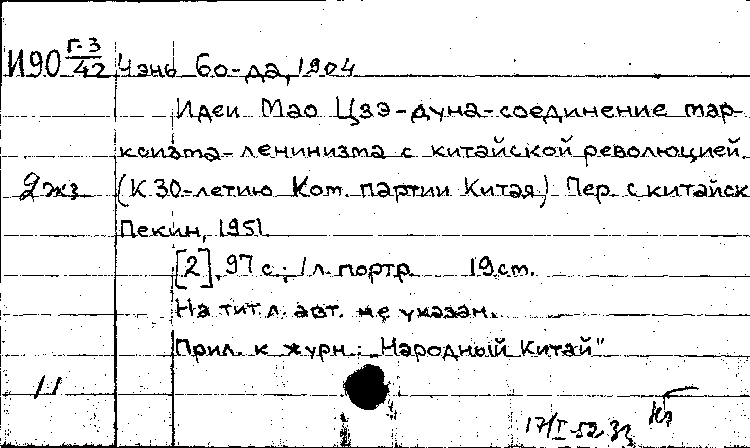 И90 Г-3/42 Чэнь Бо-да, 1904
Идеи Мао Цзэ-дуна-соединение мар-
ксизма-ленинизма с китайской революцией.
2жз (К 30-летию Ком. партии Китая) Пер. с китайск
Пекин, 1951.
[2], 97 с.; 1 л. портр. 19 см.
На тит л. авт. не указан.
Прил. к журн.: „Народный Китай"
11
17/I-52